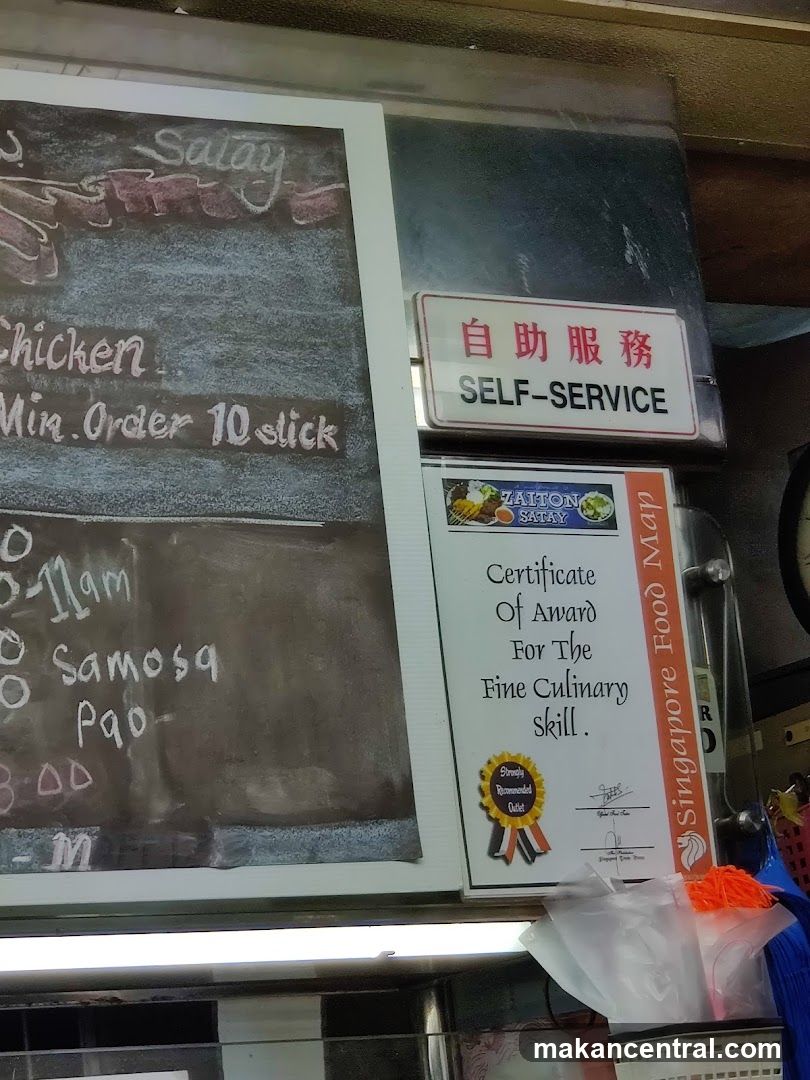 Satay
Chicken
Min. Order 10 stick
0
0-11am
0 Samosa
0 Pao
3.00
- M
自助服務
SELF-SERVICE
ZAITON
SATAY
Certificate
Of Award
For The
Fine Culinary
Skill .
Strongly
Recommended
Outlet
Singapore Food Map
makancentral.com